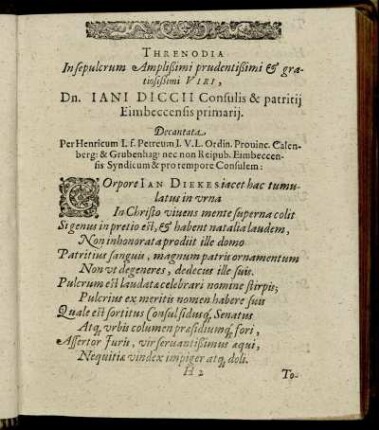 THRENODIA
In sepulcrum Amplißimi prudentißimi & gra-
tiosißimi VIRI,
Dn. IANI DICCII Consulis & patritij
Eimbeccensis primarij.
Decantata
Per Henricum I. f. Petreum I. V. L. Ordin. Provinc. Calen-
berg: & Grubenhag: nec non Reipub. Eimbeccen-
sis Syndicum & pro tempore Consulem:
COrpore IAN DIEKES iacet hac tumu-
latus in vrna
In Christo vivens mente superna colit
Si genus in pretio est, & habent natalia laudem,
Non inhonorata prodiit ille domo
Patritius sanguis, magnum patriæ ornamentum
Non vt degeneres, dedecus ille suis.
Pulcrum est laudata celebrari nomine stirpis;
Pulcrius ex meritis nomen habere suis
Quale est sortitus Consul fidusq́, Senatus
Atq, vrbis columen præsidiumq́, fori,
Assertor Iuris, vir servantißimus æqui,
Nequitiæ vindex impiger atq, doli.
H 2
To-